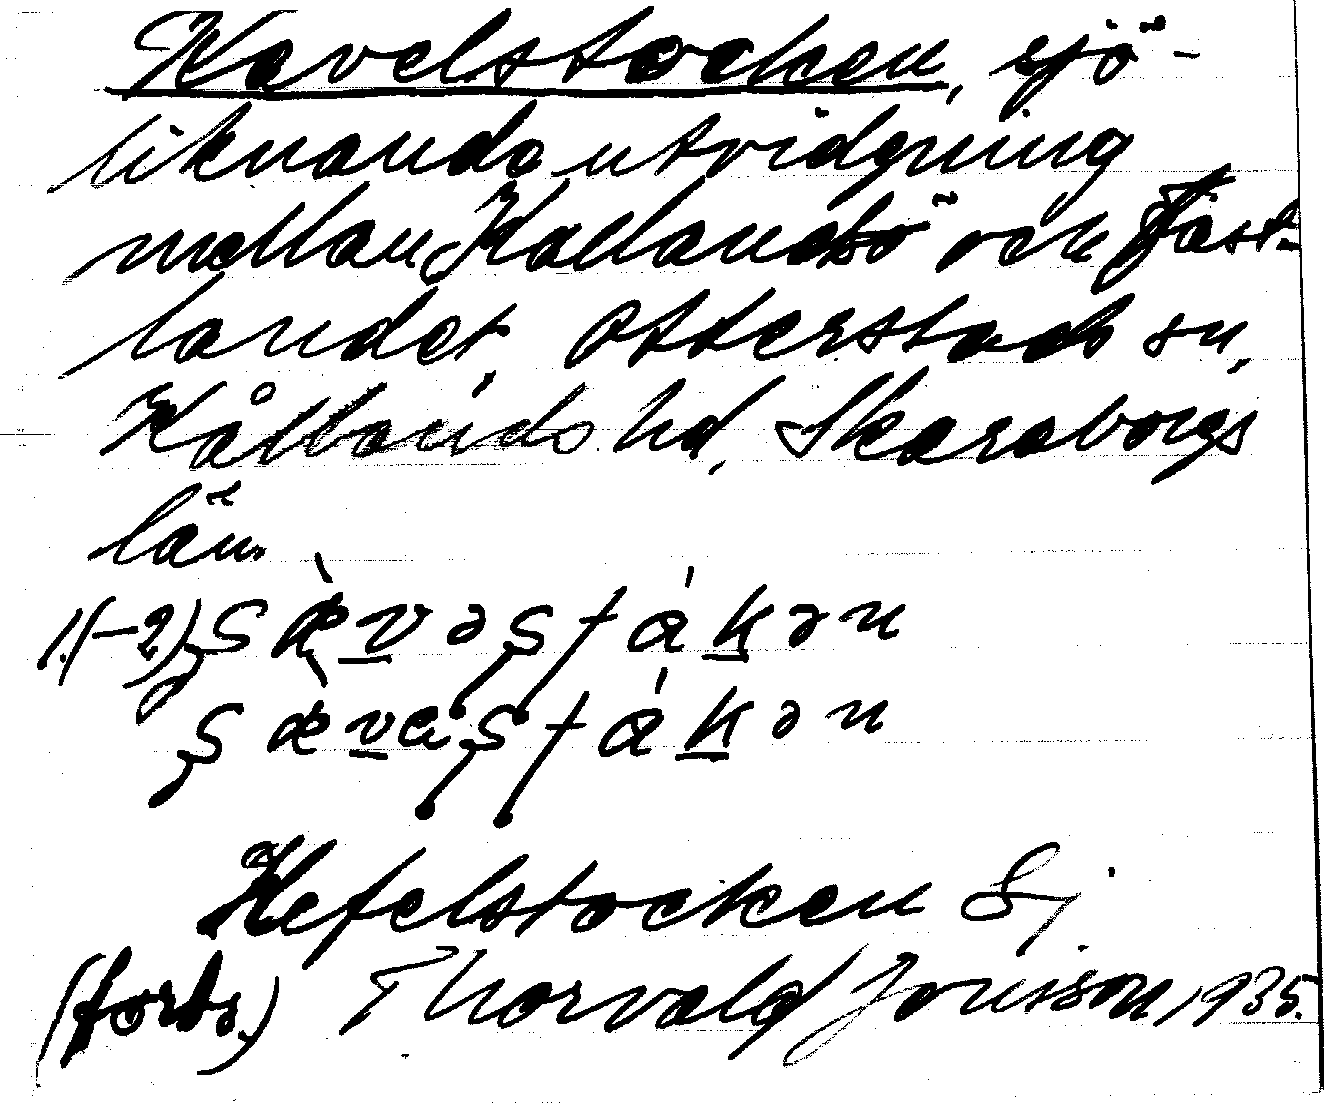 Kavelstocken, sjö-
liknande utvidgning
mellan Kållandsö och fast-
landet, Otterstads sn,
Kållands hd, Skaraborgs
län.
1.(-2)
Hefelstocken Sj.
(forts.) Thorvald Jonsson, 1935.